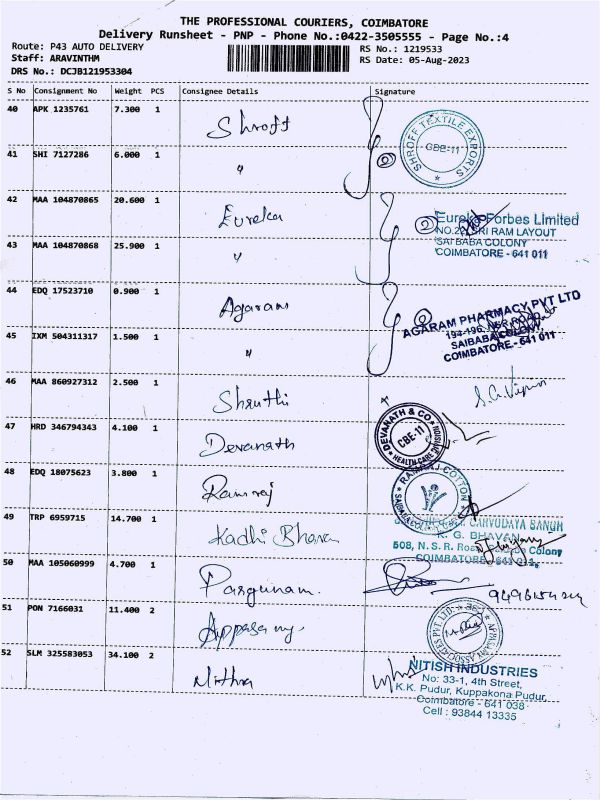 THE PROFESSIONAL COURIERS, COIMBATORE
Delivery Runsheet - PNP - Phone No.:0422-3505555 - Page No.:4
Route: P43 AUTO DELIVERY RS No.: 1219533
Staff: ARAVINTHM RS Date: 05-Aug-2023
DRS No.: DCJB121953304
S No Consignment No Weight PCS Consignee Details Signature
40 APK 1235761 7.300 1 Shroff SHROFF TEXTILE EXPORTS CBE-11
41 SHI 7127286 6.000 1 " 2
42 MAA 104870865 20.600 1 Eureka 2 Eureka Forbes Limited
NO.22, SRI RAM LAYOUT
SAI BABA COLONY
COIMBATORE - 641 011
43 MAA 104870868 25.900 1 "
44 EDQ 17523710 0.900 1 Agaram 2 AGARAM PHARMACY PVT LTD
194-196, NSR ROAD,
SAIBABA COLONY
COIMBATORE - 641 011
45 IXM 504311317 1.500 1 "
46 MAA 860927312 2.500 1 Shruthi S.G.
47 HRD 346794343 4.100 1 Devanath DEVANATH & CO HEALTH CARE DIVISION CBE-11
48 EDQ 18075623 3.800 1 Ramraj RAMRAJ COTTON
49 TRP 6959715 14.700 1 Kadhi Bhavan SARVODAYA SANGH
K. G. BHAVAN
508, N.S.R. Road, Colony
COIMBATORE - 641 011.
50 MAA 105060999 4.700 1 Pasgunam
51 PON 7166031 11.400 2 Appasamy ASSOCIATES PVT. LTD.
52 SLM 325583053 34.100 2 Nithra NITISH INDUSTRIES
No: 33-1, 4th Street,
K.K. Pudur, Kuppakona Pudur,
Coimbatore - 641 038
Cell : 93844 13335